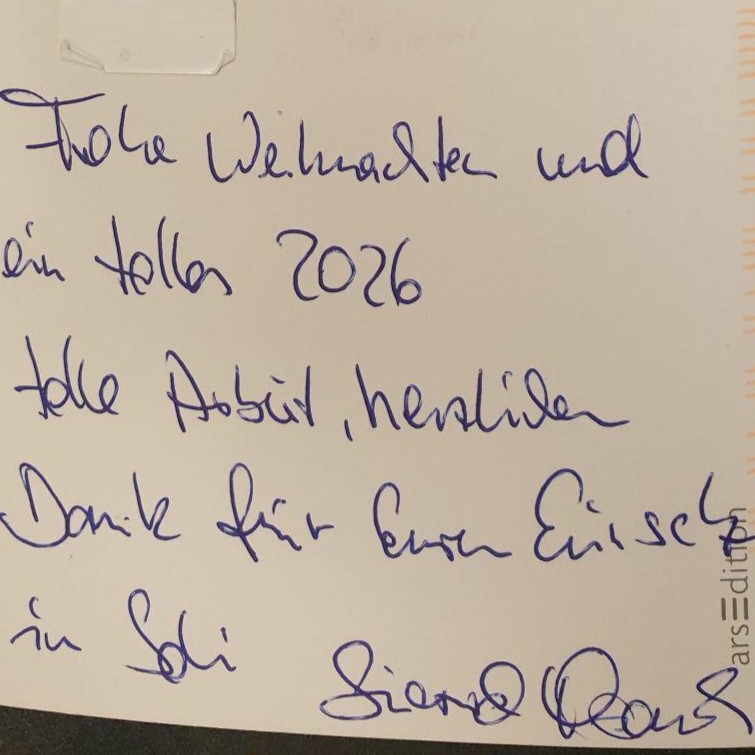 Frohe Weihnachten und
ein tolles 2026
tolle Arbeit, herzlichen
Dank für Euren Einsatz
in
arsEdition